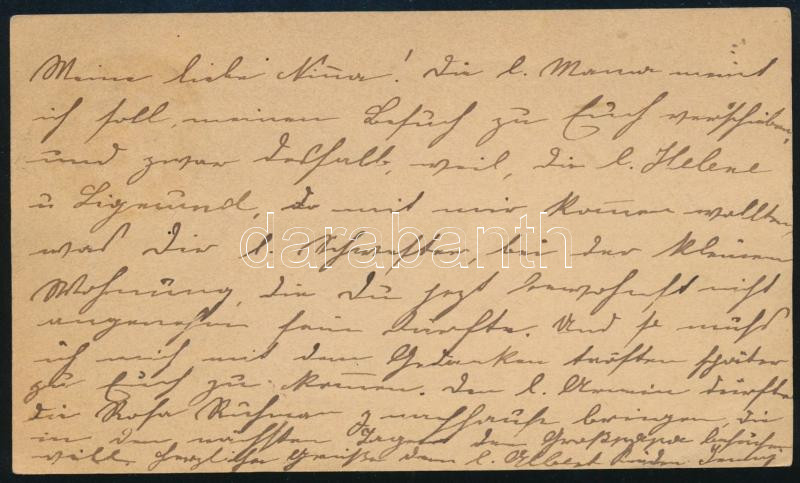 Meine liebe Nina! Die l. Mama meint
ich soll, meinen Besuch zu Euch verschieben,
und zwar deshalb, weil, die l. Helene
u Sigmund, da mit mir kommen wollten,
was Dir l. Schwester, bei der kleinen
Wohnung, die Du jezt bewohnst nicht
angenehm sein dürfte. Und so muß
ich mich mit dem Gedanken trösten später
zu Euch zu kommen. Den l. Armin dürfte
die Rosa nachhause bringen die
in den nächsten Tagen den Großpapa besuchen
will. Herzliche Grüße dem l. Albert
darabanth